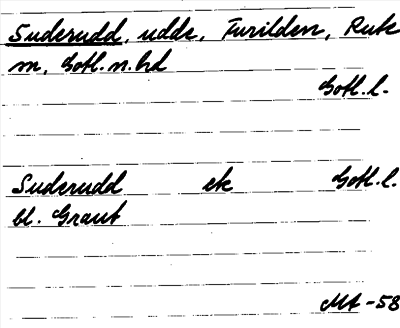 Suderudd, udde, Furilden, Rute
sn, Gotl.n.hd
Gotl.l.
Suderudd ek Gotl.l.
bl. Graut
MA -58